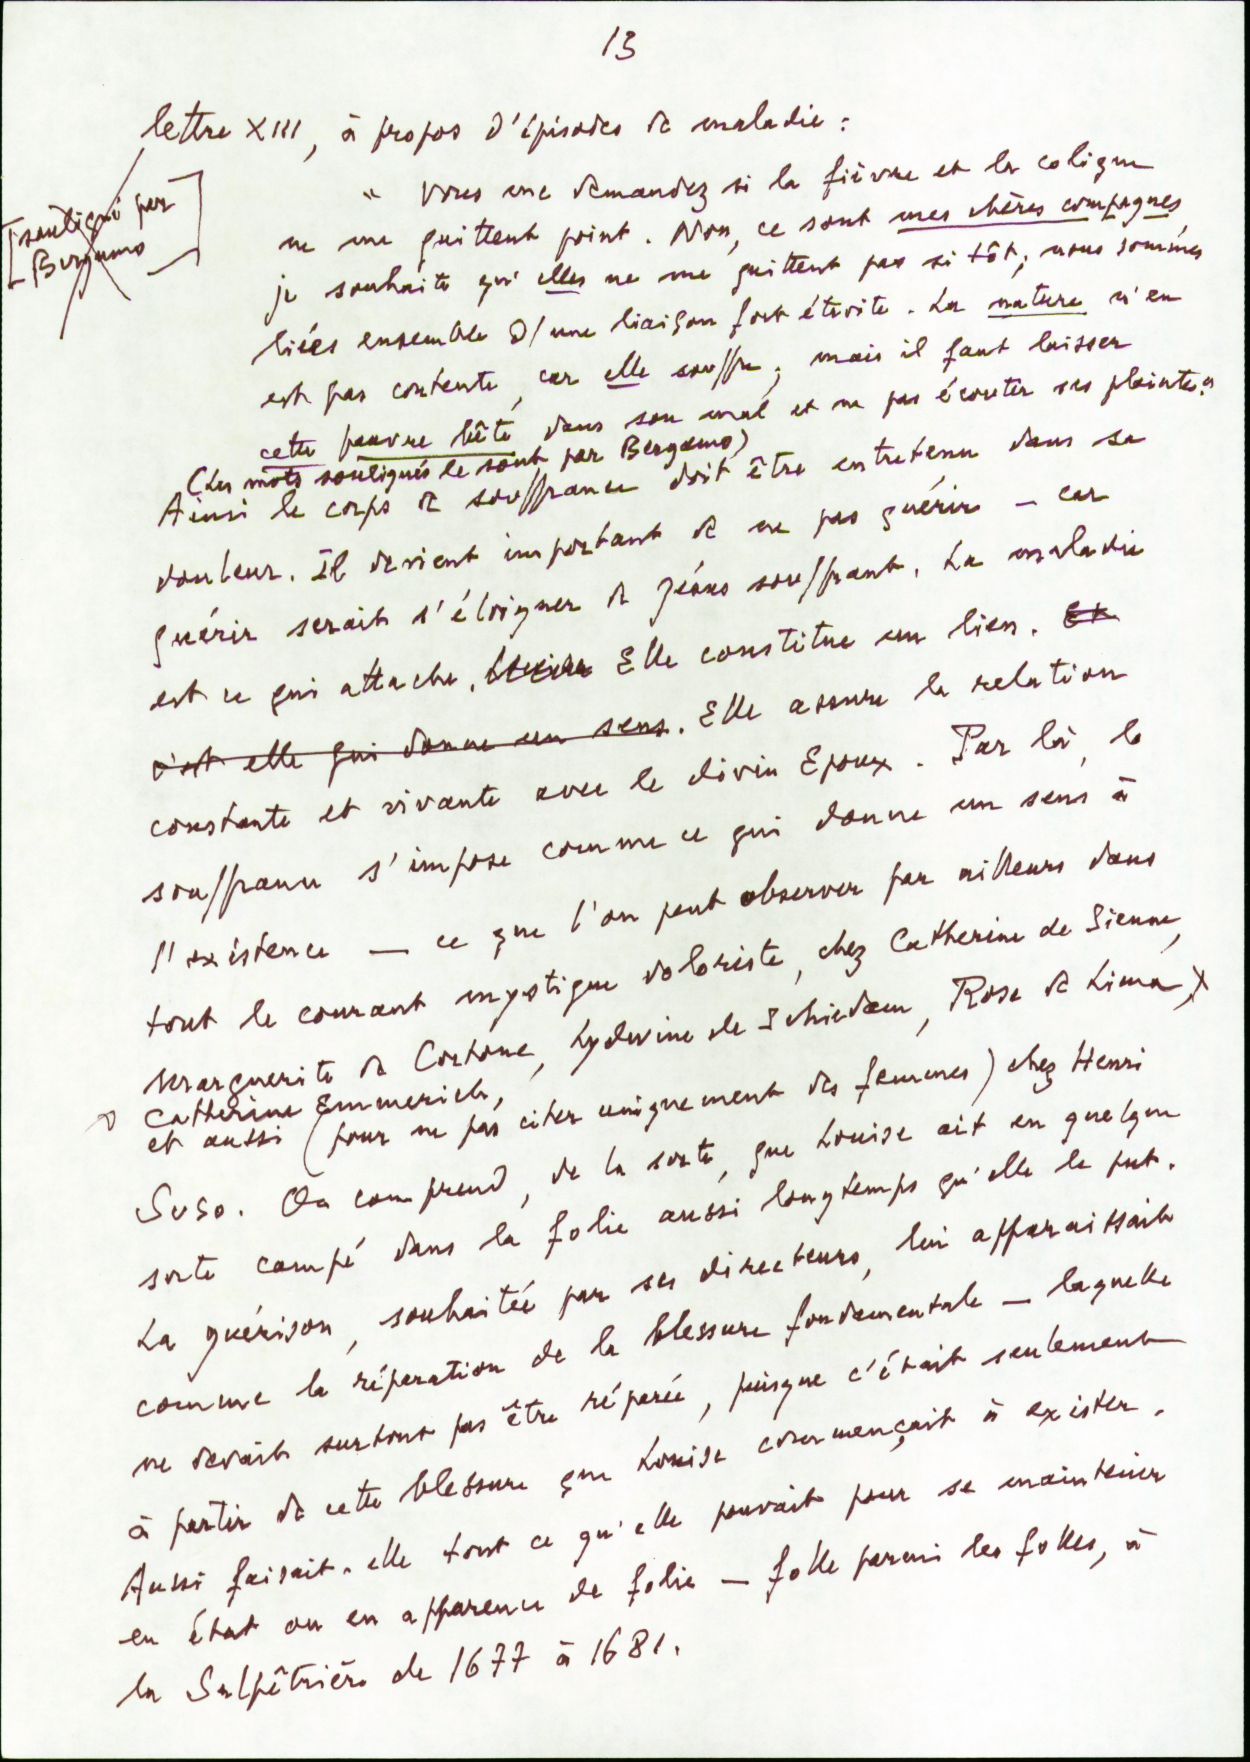 13
lettre XIII, à propos d'épisodes de maladie :
[souligné par
Bergamo]
" Vous me demandez si la fièvre et la colique
ne me quittent point. Non, ce sont mes chères compagnes
je souhaite qu'elles ne me quittent pas si tôt; nous sommes
liées ensemble d'une liaison fort étroite. La nature n'en
est pas contente, car elle souffre; mais il faut laisser
cette pauvre bête dans son mal et ne pas écouter ses plaintes."
(Les mots soulignés le sont par Bergamo)
Ainsi le corps de souffrance doit être entretenu dans sa
douleur. Il devient important de ne pas guérir — car
guérir serait s'éloigner de Jésus souffrant. La maladie
est ce qui attache. Elle constitue un lien. Et
c'est elle qui donne un sens. Elle assure la relation
constante et vivante avec le divin Epoux. Par là, la
souffrance s'impose comme ce qui donne un sens à
l'existence — ce que l'on peut observer par ailleurs dans
tout le courant mystique doloriste, chez Catherine de Sienne,
Marguerite de Cortone, Lydwine de Schiedam, Rose de Lima,
Catherine Emmerich,
et aussi (pour ne pas citer uniquement des femmes) chez Henri
Suso. On comprend, de la sorte, que Louise ait en quelque
sorte campé dans la folie aussi longtemps qu'elle le put.
La guérison, souhaitée par ses directeurs, lui apparaissait
comme la réparation de la blessure fondamentale — laquelle
ne devait surtout pas être réparée, puisque c'était seulement
à partir de cette blessure que Louise commençait à exister.
Aussi faisait-elle tout ce qu'elle pouvait pour se maintenir
en état ou en apparence de folie — folle parmi les folles, à
la Salpêtrière de 1677 à 1681.